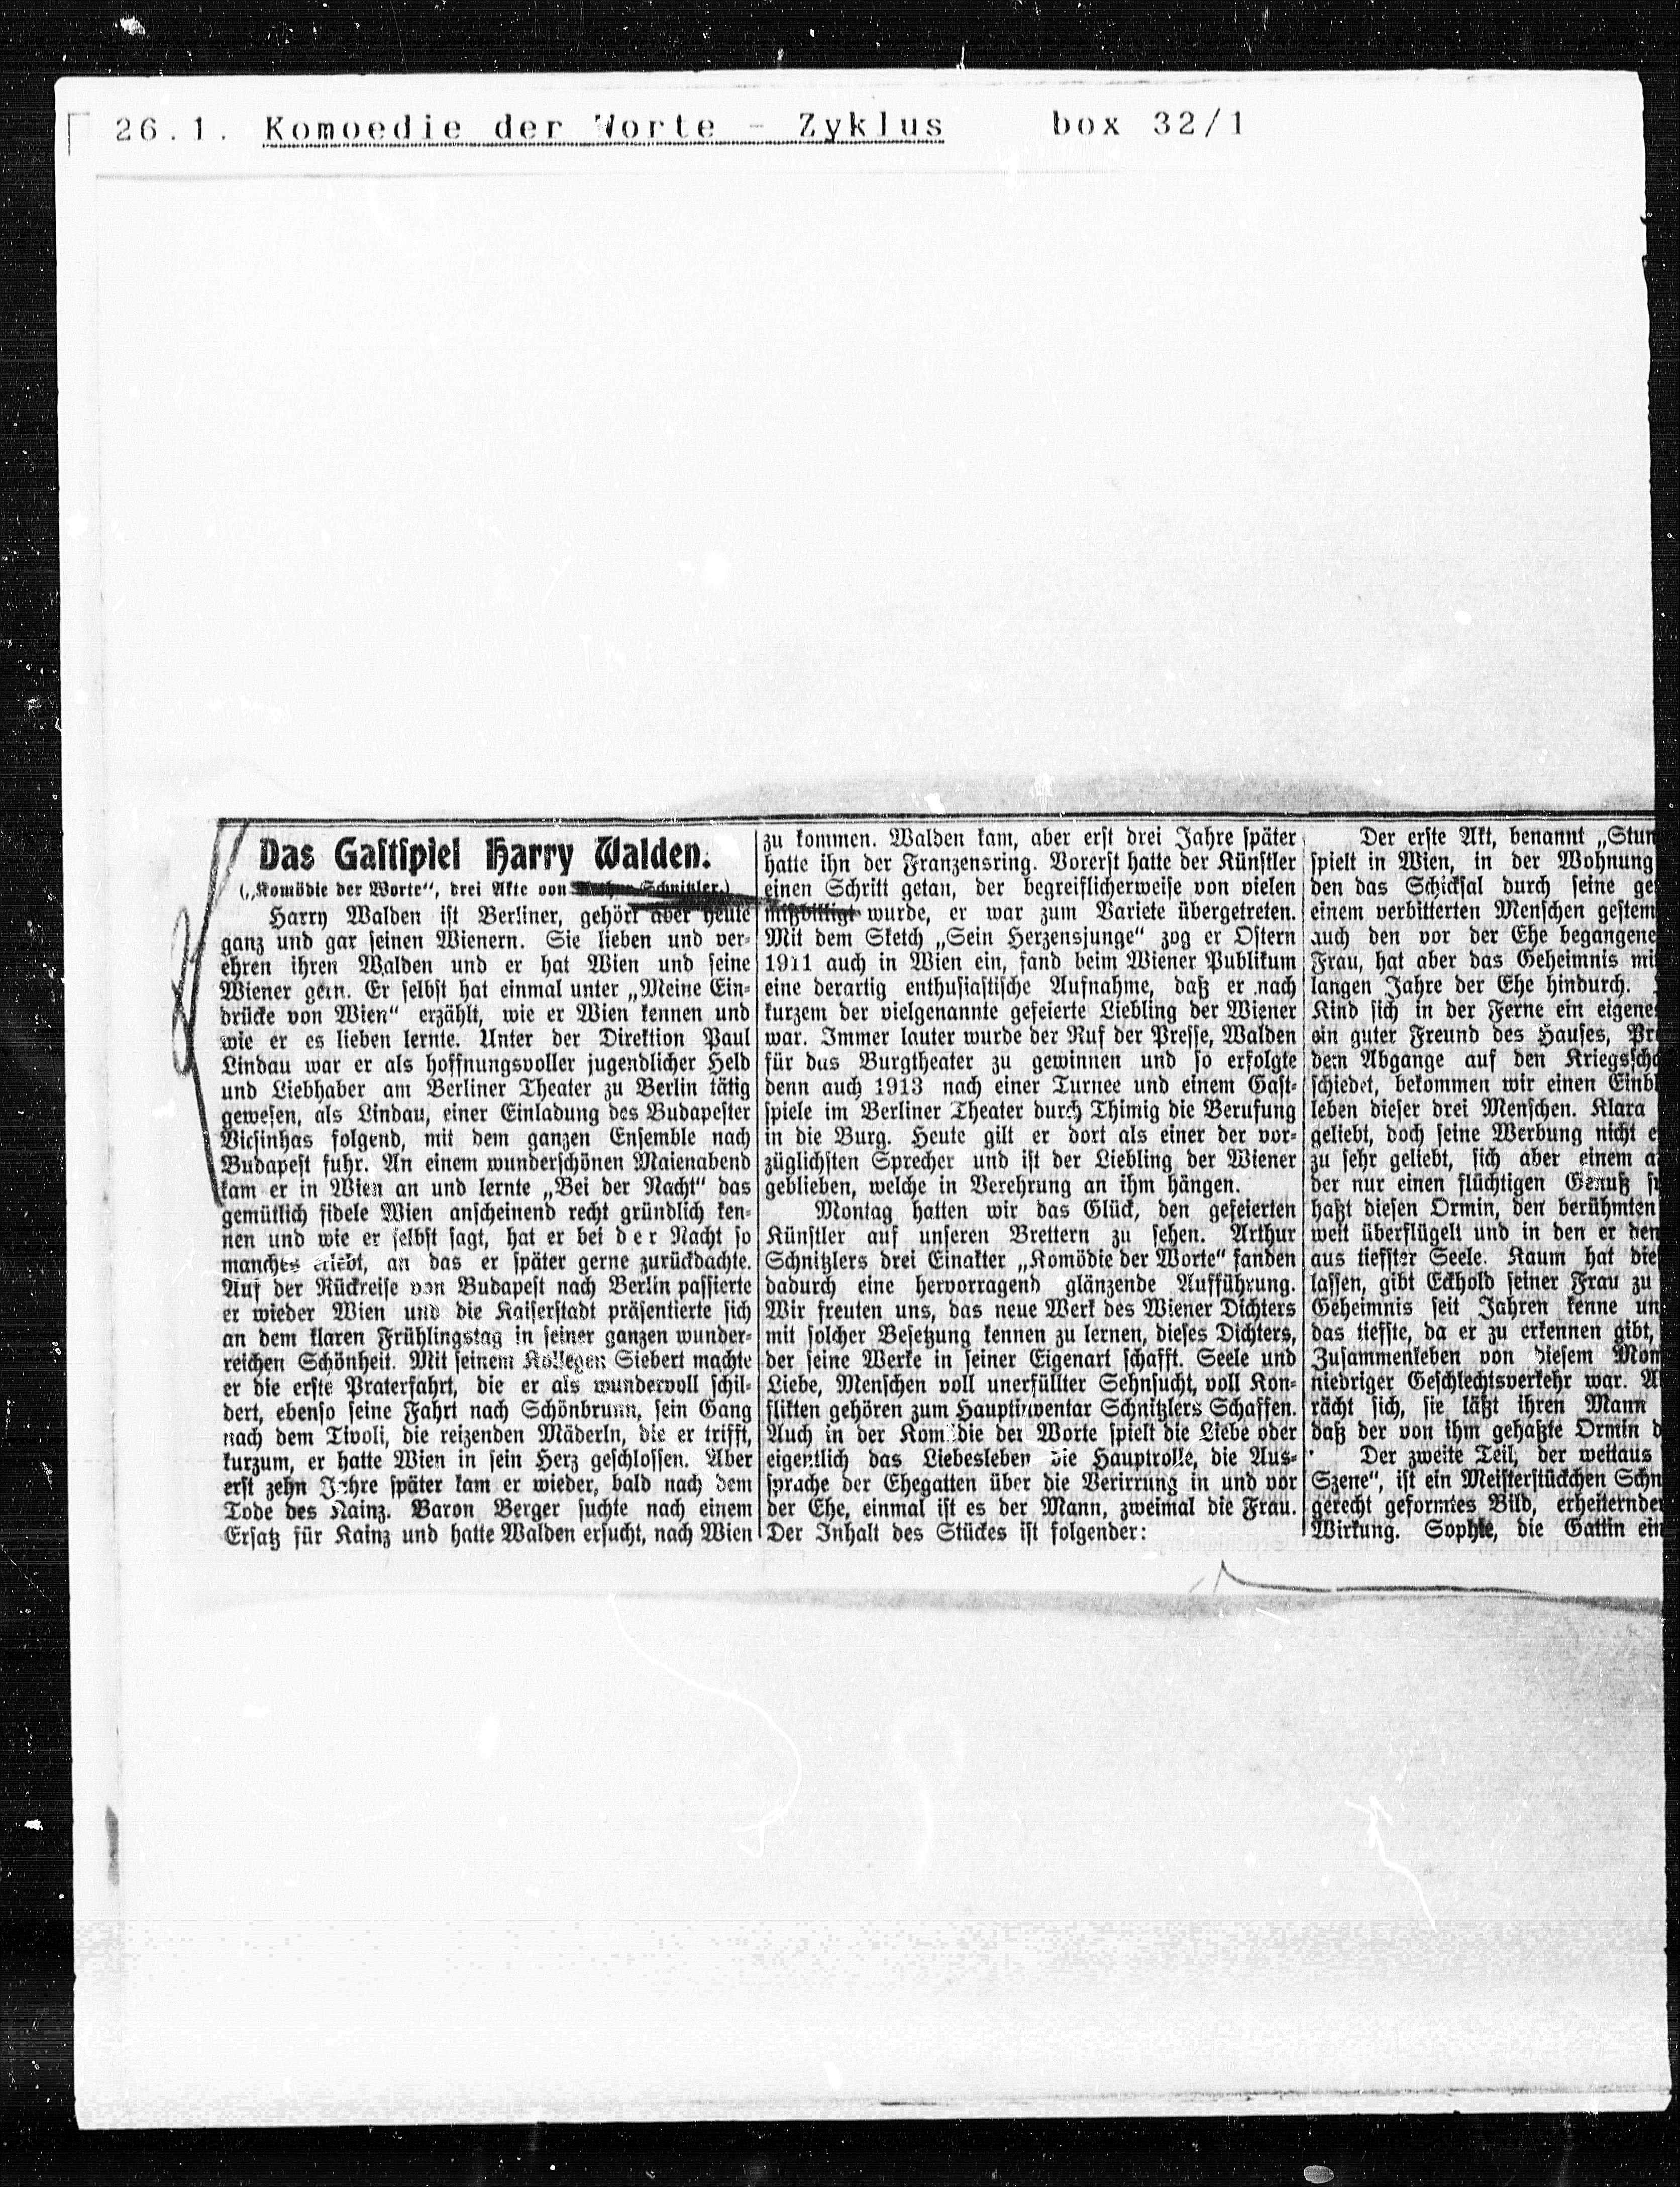 26.1. Komoedie der Worte - Zyklus box 32/1
Das Gastspiel Harry Walden.
(„Komödie der Worte“, drei Akte von Arthur Schnitzler.)
Harry Walden ist Berliner, gehört aber heute
ganz und gar seinen Wienern. Sie lieben und ver-
ehren ihren Walden und er hat Wien und seine
Wiener gern. Er selbst hat einmal unter „Meine Ein-
drücke von Wien“ erzählt, wie er Wien kennen und
wie er es lieben lernte. Unter der Direktion Paul
Lindau war er als hoffnungsvoller jugendlicher Held
und Liebhaber am Berliner Theater zu Berlin tätig
gewesen, als Lindau, einer Einladung des Budapester
Vicsinhas folgend, mit dem ganzen Ensemble nach
Budapest fuhr. An einem wunderschönen Maienabend
kam er in Wien an und lernte „Bei der Nacht“ das
gemütlich fidele Wien anscheinend recht gründlich ken-
nen und wie er selbst sagt, hat er bei der Nacht so
manches erlebt, an das er später gerne zurückdachte.
Auf der Rückreise von Budapest nach Berlin passierte
er wieder Wien und die Kaiserstadt präsentierte sich
an dem klaren Frühlingstag in seiner ganzen wunder-
reichen Schönheit. Mit seinem Kollegen Siebert machte
er die erste Praterfahrt, die er als wundervoll schil-
dert, ebenso seine Fahrt nach Schönbrunn, sein Gang
nach dem Tivoli, die reizenden Mäderln, die er trifft,
kurzum, er hatte Wien in sein Herz geschlossen. Aber
erst zehn Jahre später kam er wieder, bald nach dem
Tode des Kainz. Baron Berger suchte nach einem
Ersatz für Kainz und hatte Walden ersucht, nach Wien
zu kommen. Walden kam, aber erst drei Jahre später
hatte ihn der Franzensring. Vorerst hatte der Künstler
einen Schritt getan, der begreiflicherweise von vielen
mißbilligt wurde, er war zum Variete übergetreten.
Mit dem Sketch „Sein Herzensjunge“ zog er Ostern
1911 auch in Wien ein, fand beim Wiener Publikum
eine derartig enthusiastische Aufnahme, daß er nach
kurzem der vielgenannte gefeierte Liebling der Wiener
war. Immer lauter wurde der Ruf der Presse, Walden
für das Burgtheater zu gewinnen und so erfolgte
denn auch 1913 nach einer Turnee und einem Gast-
spiele im Berliner Theater durch Thimig die Berufung
in die Burg. Heute gilt er dort als einer der vor-
züglichsten Sprecher und ist der Liebling der Wiener
geblieben, welche in Verehrung an ihm hängen.
Montag hatten wir das Glück, den gefeierten
Künstler auf unseren Brettern zu sehen. Arthur
Schnitzlers drei Einakter „Komödie der Worte“ fanden
dadurch eine hervorragend glänzende Aufführung.
Wir freuten uns, das neue Werk des Wiener Dichters
mit solcher Besetzung kennen zu lernen, dieses Dichters,
der seine Werke in seiner Eigenart schafft. Seele und
Liebe, Menschen voll unerfüllter Sehnsucht, voll Kon-
flikten gehören zum Hauptinventar Schnitzlers Schaffen.
Auch in der Komödie der Worte spielt die Liebe oder
eigentlich das Liebesleben die Hauptrolle, die Aus-
sprache der Ehegatten über die Verirrung in und vor
der Ehe, einmal ist es der Mann, zweimal die Frau.
Der Inhalt des Stückes ist folgender:
Der erste Akt, benannt „Stun
spielt in Wien, in der Wohnung
den das Schicksal durch seine ge
einem verbitterten Menschen gestem
auch den vor der Ehe begangene
Frau, hat aber das Geheimnis mi
langen Jahre der Ehe hindurch.
Kind sich in der Ferne ein eigene
ein guter Freund des Hauses, Pr
dem Abgange auf den Kriegsscha
schiedet, bekommen wir einen Einb
leben dieser drei Menschen. Klara
geliebt, doch seine Werbung nicht e
zu sehr geliebt, sich aber einem a
der nur einen flüchtigen Genuß s
haßt diesen Ormin, den berühmten
weit überflügelt und in den er den
aus tiefster Seele. Kaum hat die
lassen, gibt Eckhold seiner Frau zu
Geheimnis seit Jahren kenne un
das tiefste, da er zu erkennen gibt,
Zusammenleben von diesem Mom
niedriger Geschlechtsverkehr war. A
rächt sich, sie läßt ihren Mann
daß der von ihm gehaßte Ormin d
Der zweite Teil, der weitaus
Szene“, ist ein Meisterstückchen Schn
gerecht geformtes Bild, erheiternder
Wirkung. Sophie, die Gattin ein